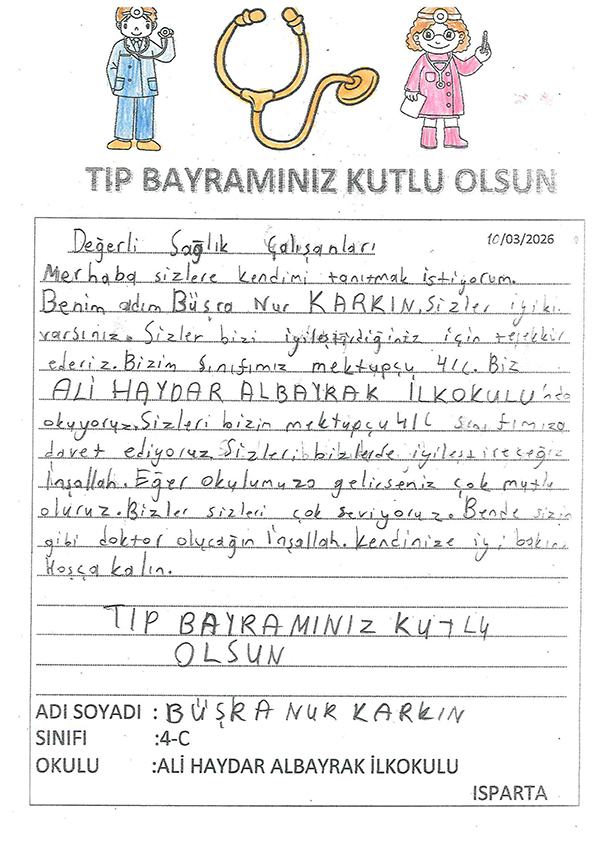 TIP BAYRAMINIZ KUTLU OLSUN
10/03/2026
Değerli Sağlık Çalışanları
Merhaba sizlere kendimi tanıtmak istiyorum.
Benim adım Büşra Nur KARKIN. Sizler iyiki
varsınız. Sizler bizi iyileştirdiğiniz için teşekkür
ederiz. Bizim sınıfımız mektupçu 4/C. Biz
ALİ HAYDAR ALBAYRAK İLKOKULU'nda
okuyoruz. Sizleri bizim mektupçu 4/C sınıfımıza
davet ediyoruz. Sizleri bizlerde iyileştireceğiz
İnşallah. Eğer okulumuza gelirseniz çok mutlu
oluruz. Bizler sizleri çok seviyoruz. Bende sizin
gibi doktor olucağım İnşallah. Kendinize iyi bakın.
Hoşça kalın.
TIP BAYRAMINIZ KUTLU
OLSUN
ADI SOYADI : BÜŞRA NUR KARKIN
SINIFI :4-C
OKULU :ALİ HAYDAR ALBAYRAK İLKOKULU
ISPARTA